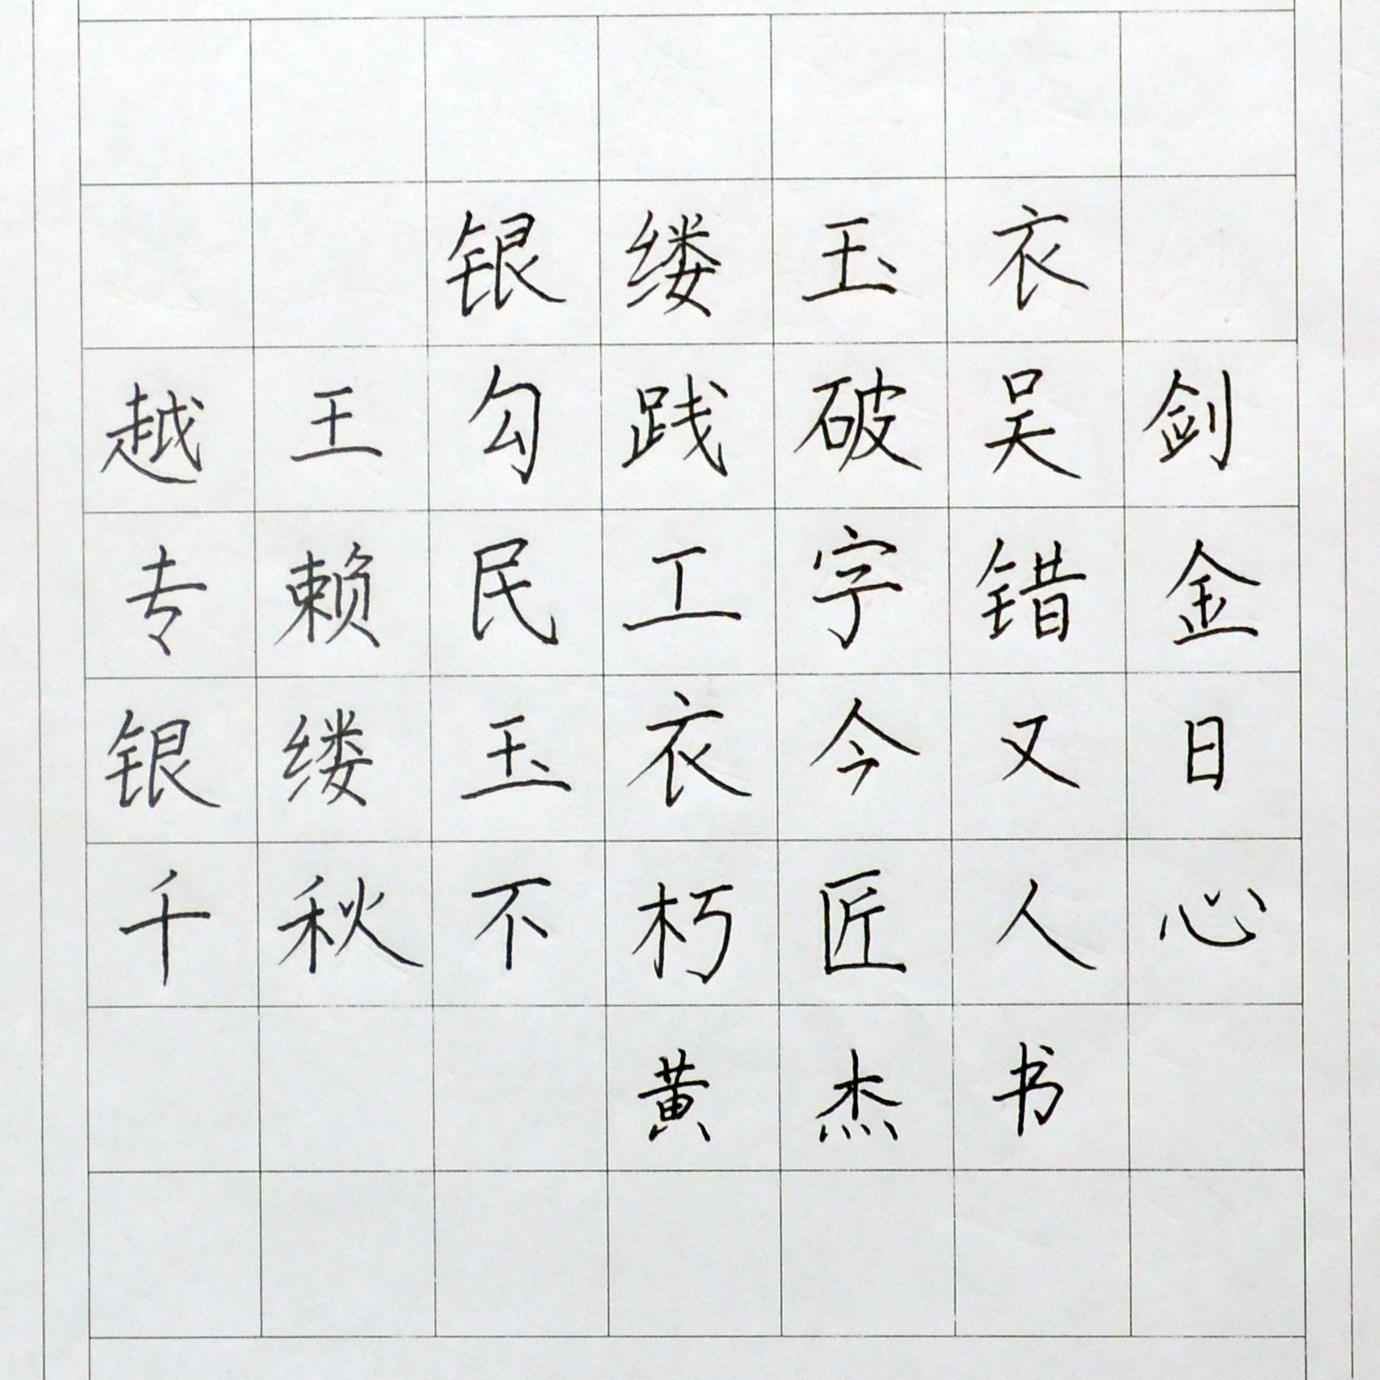 银缕玉衣
越王勾践破吴剑
专赖民工字错金
银缕玉衣今又日
千秋不朽匠人心
黄杰书